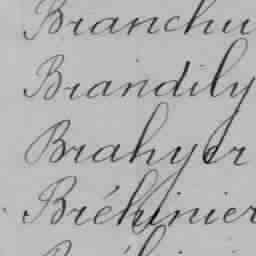 Branchu
Brandily
Brahyer
Bréhinier